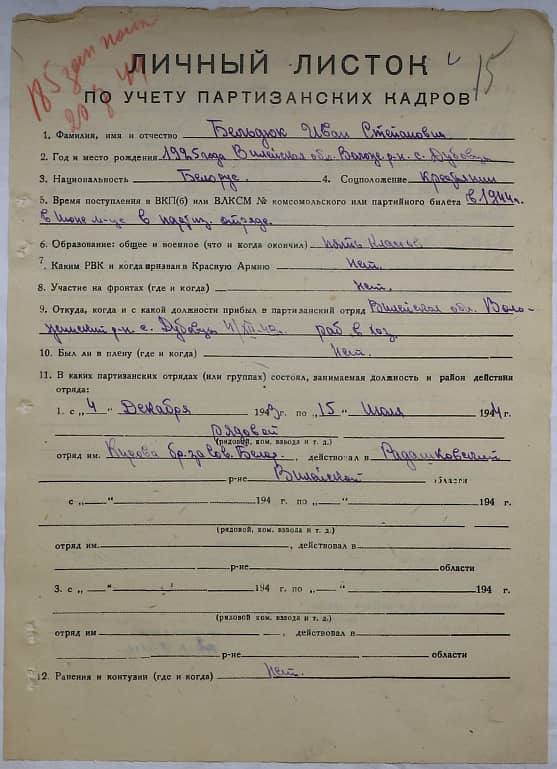 185 зап полк
20.8.44
15
ЛИЧНЫЙ ЛИСТОК
ПО УЧЕТУ ПАРТИЗАНСКИХ КАДРОВ
1. Фамилия, имя и отчество Бельдюк Иван Степанович
2. Год и место рождения 1925 года Вилейская обл. Волож. р-н. с. Дубовцы
3. Национальность Белорус. 4. Соцположение Крестьянин
5. Время поступления в ВКП(б) или ВЛКСМ № комсомольского или партийного билета в 1944г.
в июне м-це в партиз. отряде.
6. Образование: общее и военное (что и когда окончил) пять классов
7. Каким РВК и когда призван в Красную Армию Нет.
8. Участие на фронтах (где и когда) Нет.
9. Откуда, когда и с какой должности прибыл в партизанский отряд Вилейская обл. Воло-
жинский р-н с. Дубовцы раб в хоз.
10. Был ли в плену (где и когда) Нет.
11. В каких партизанских отрядах (или группах) состоял, занимаемая должность и район действия
отряда:
1. с „4" Декабря 1943г. по „15" Июля 1944г.
рядовой
(рядовой, ком. взвода и т. д.)
отряд им. Кирова бр. за Сов. Белор., действовал в Радашковский
р-не Вилейской области
с „ " 194 г. по „ " 194 г.
(рядовой, ком. взвода и т. д.)
отряд им. , действовал в
р-не области
3. с „ " 194 г. по „ " 194 г.
(рядовой ком. взвода и т. д.)
отряд им , действовал в
р-не области
12. Ранения и контузии (где и когда) Нет.